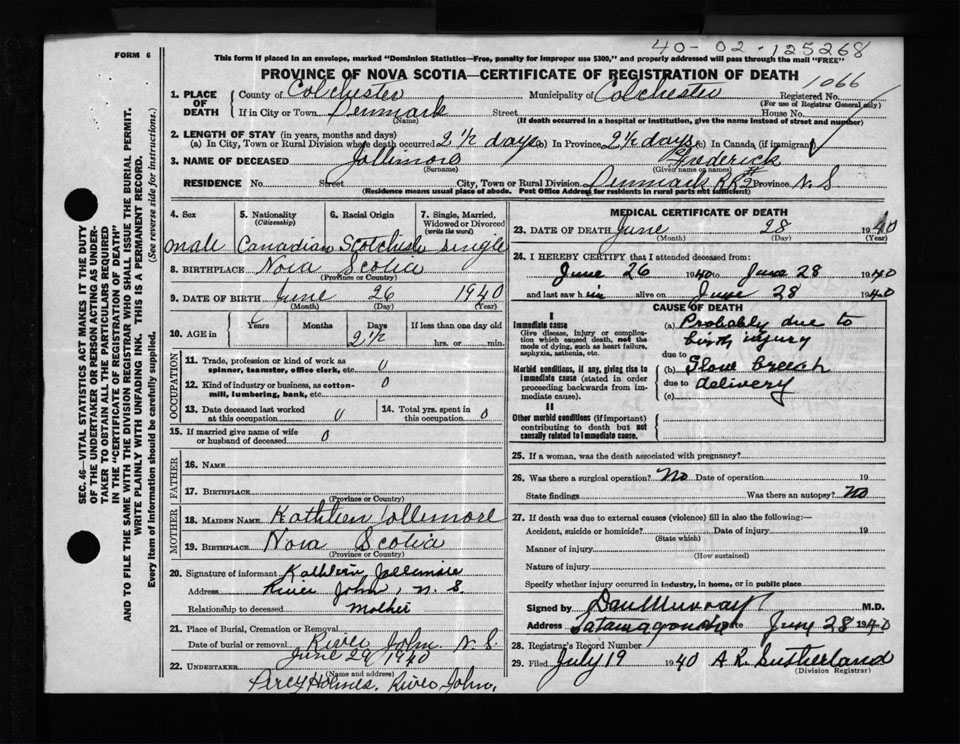 40-02-125268
FORM 6
This form if placed in an envelope, marked "Dominion Statistics—Free, penalty for improper use $300," and properly addressed will pass through the mail "FREE"
PROVINCE OF NOVA SCOTIA—CERTIFICATE OF REGISTRATION OF DEATH
1066
1. PLACE OF DEATH County of Colchester Municipality of Colchester Registered No.
(For use of Registrar General only)
If in City or Town Denmark Street House No.
(Name) (If death occurred in a hospital or institution, give the name instead of street and number)
2. LENGTH OF STAY (in years, months and days)
(a) In City, Town or Rural Division where death occurred 2 1/2 days (b) In Province 2 1/2 days (c) In Canada (if immigrant)
3. NAME OF DECEASED Jollimore Frederick
(Surname) (Given name or names)
RESIDENCE No. Street City, Town or Rural Division Denmark RR Province N.S
(Residence means usual place of abode. Post Office Address for residents in rural parts not sufficient)
4. Sex 5. Nationality 6. Racial Origin 7. Single, Married, Widowed or Divorced
(Citizenship) (write the word)
male Canadian Scotchish single
8. BIRTHPLACE Nova Scotia
(Province or Country)
9. DATE OF BIRTH June 26 1940
(Month) (Day) (Year)
10. AGE in Years Months Days If less than one day old
2 1/2 hrs. or min.
OCCUPATION
11. Trade, profession or kind of work as spinner, teamster, office clerk, etc. 0
12. Kind of industry or business, as cotton-mill, lumbering, bank, etc. 0
13. Date deceased last worked at this occupation 0 14. Total yrs. spent in this occupation 0
15. If married give name of wife or husband of deceased 0
FATHER
16. NAME
17. BIRTHPLACE
(Province or Country)
MOTHER
18. MAIDEN NAME Kathleen Jollimore
19. BIRTHPLACE Nova Scotia
(Province or Country)
20. Signature of informant Kathleen Jollimore
Address River John, N.S.
Relationship to deceased Mother
21. Place of Burial, Cremation or Removal River John. N.S.
Date of burial or removal June 29 1940
22. UNDERTAKER Percy Holmes, River John,
(Name and address)
MEDICAL CERTIFICATE OF DEATH
23. DATE OF DEATH June 28 1940
(Month) (Day) (Year)
24. I HEREBY CERTIFY that I attended deceased from:
June 26 1940 to June 28 1940
and last saw him alive on June 28 1940
CAUSE OF DEATH
I
Immediate cause (a) Probably due to
Give disease, injury or complication which caused death, not the mode of dying, such as heart failure, asphyxia, asthenia, etc. birth injury
due to
Morbid conditions, if any, giving rise to immediate cause (stated in order proceeding backwards from immediate cause). (b) Slow breech
due to delivery
(c)
II
Other morbid conditions (if important) contributing to death but not causally related to immediate cause.
25. If a woman, was the death associated with pregnancy?
26. Was there a surgical operation? No Date of operation 19
State findings Was there an autopsy? No
27. If death was due to external causes (violence) fill in also the following:—
Accident, suicide or homicide? Date of injury 19
(State which)
Manner of injury
(How sustained)
Nature of injury
Specify whether injury occurred in industry, in home, or in public place
Signed by Dan Murray M.D.
Address Tatamagouche Date June 28 1940
28. Registrar's Record Number
29. Filed July 19 1940 A R Sutherland
(Division Registrar)
SEC. 46—VITAL STATISTICS ACT MAKES IT THE DUTY
OF THE UNDERTAKER OR PERSON ACTING AS UNDER-
TAKER TO OBTAIN ALL THE PARTICULARS REQUIRED
IN THE "CERTIFICATE OF REGISTRATION OF DEATH"
AND TO FILE THE SAME WITH THE DIVISION REGISTRAR WHO SHALL ISSUE THE BURIAL PERMIT.
WRITE PLAINLY WITH UNFADING INK. THIS IS A PERMANENT RECORD.
Every item of information should be carefully supplied. (See reverse side for instructions.)